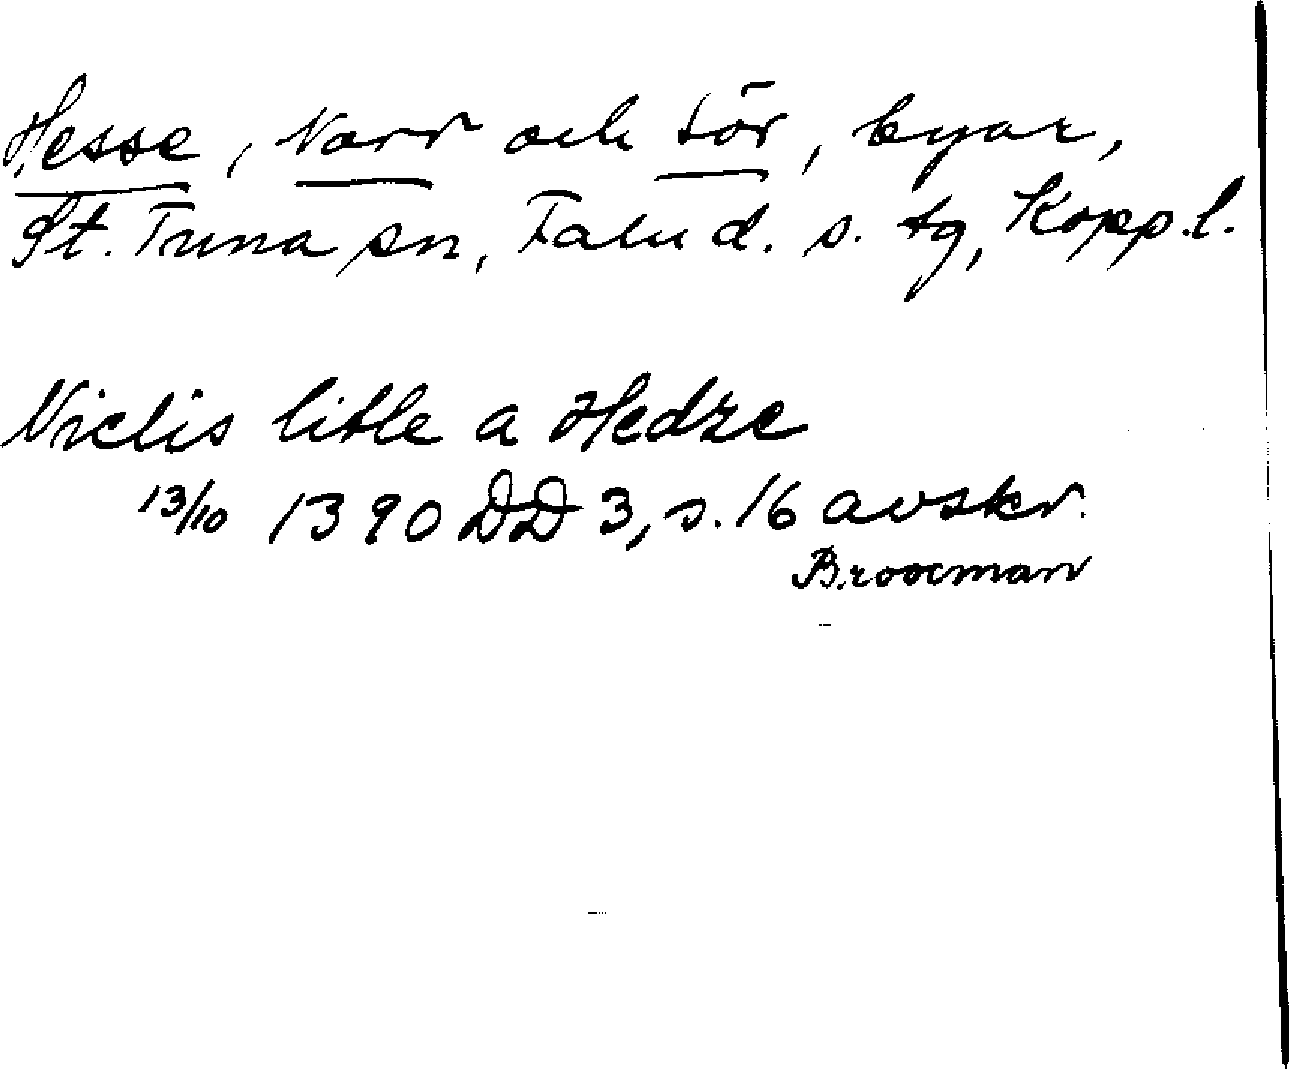 Hesse, Norr och Sör, byar,
St. Tuna sn, Falu d. s. tg, Kopp.l.
Niclis litle a Hedze
13/10 1390 DD 3, s. 16 avskr.
Broocman